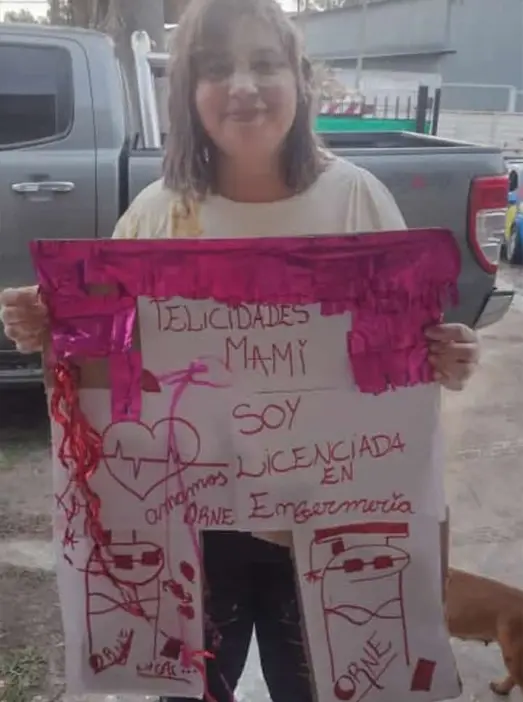 FELICIDADES
MAMI
SOY
LICENCIADA
EN
Enfermería
amamos
ORNE
ORNE
ORNE